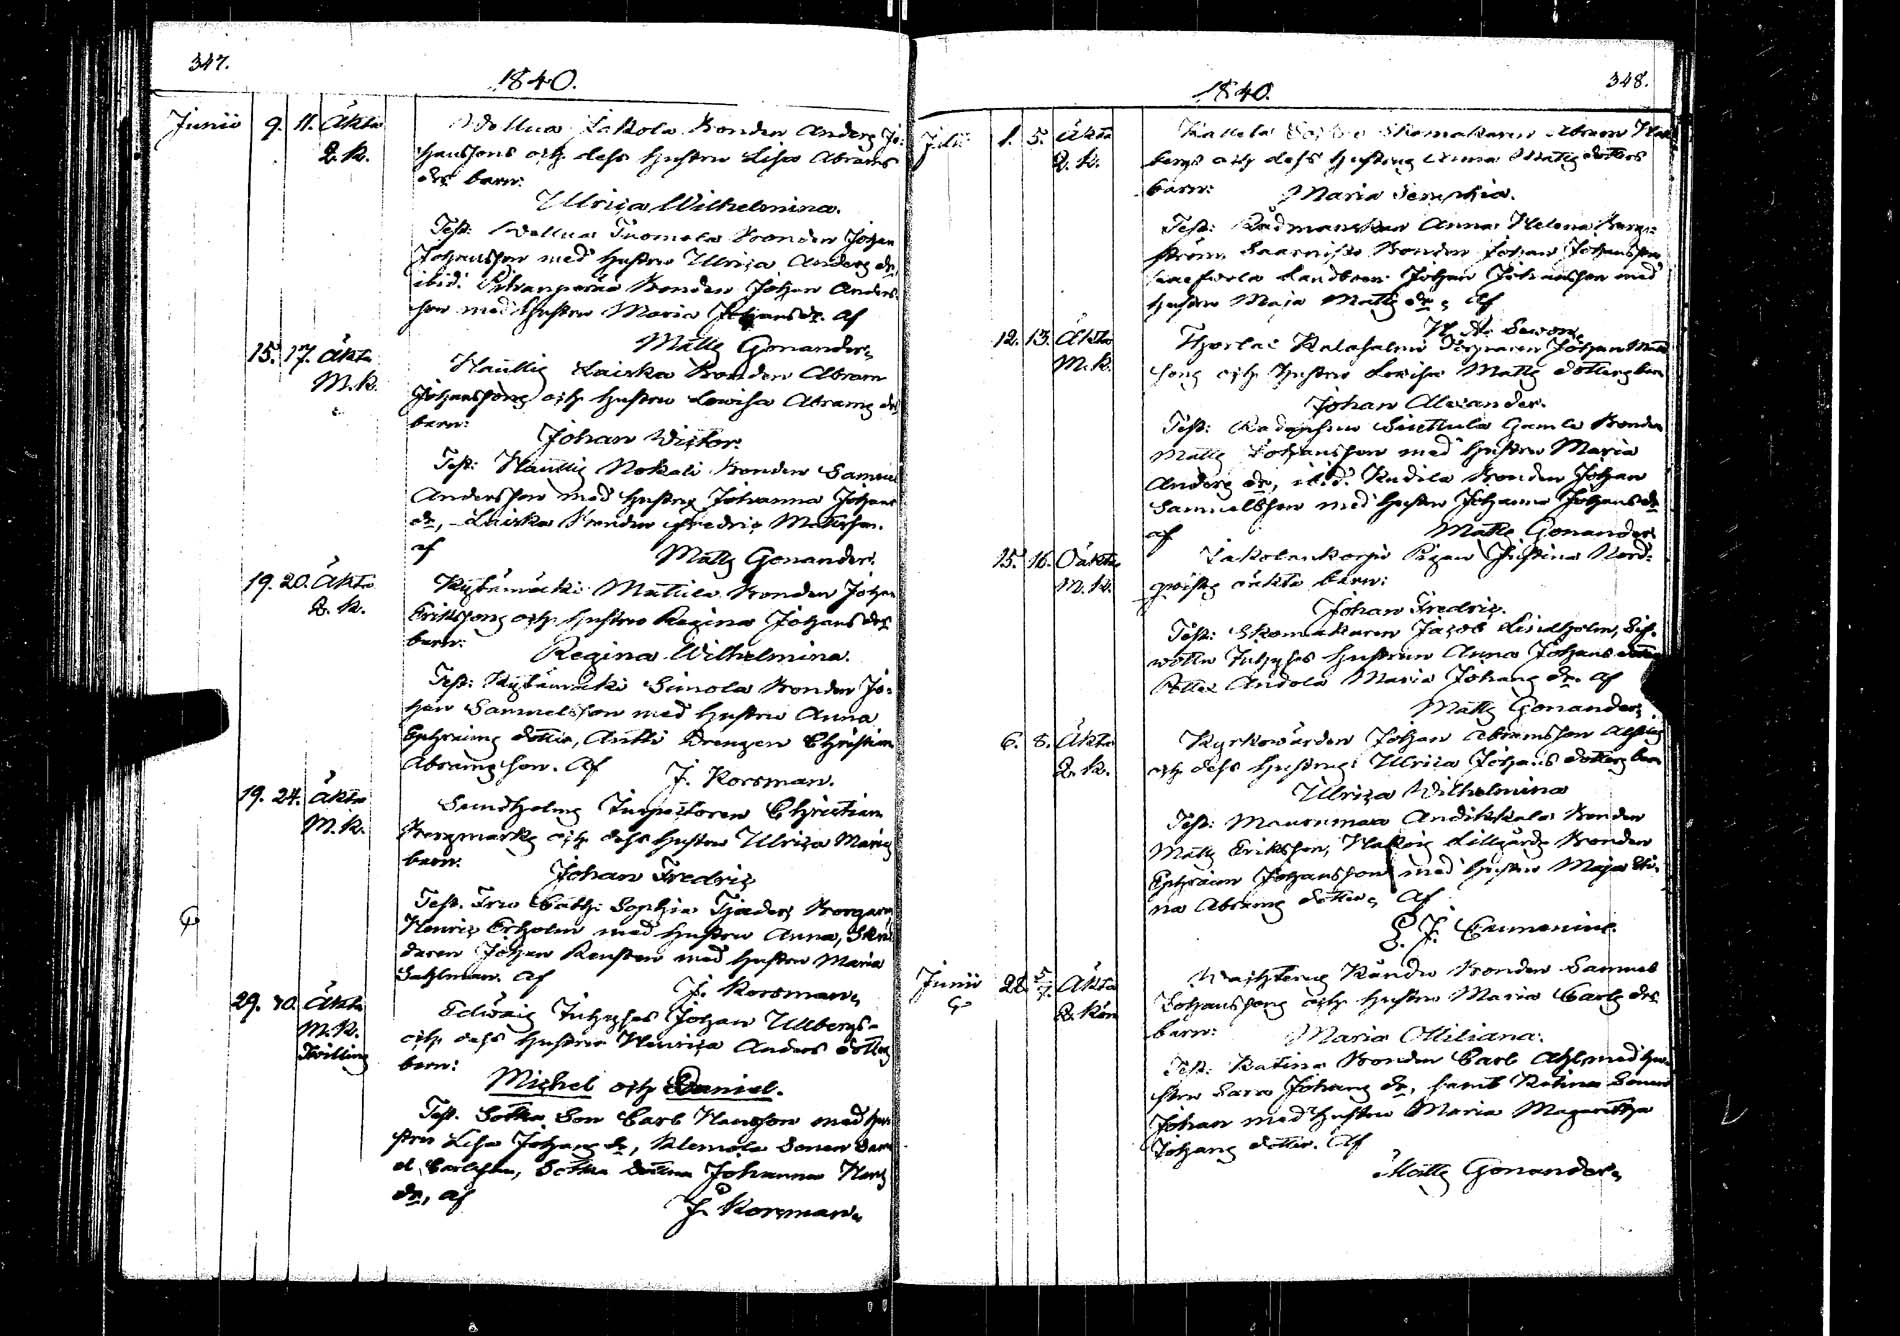 347.
1840.
Junii 9. 11. Äkta Wellua Jakola Bonden Anders Jo-
Q. K. hanssons och dess hustru Lisa Abrams
dr barn:
Ulrica Wilhelmina.
Test: Wellua Tuomola Bonden Johan
Johansson med hustru Ulrica Anders dr,
ibid. Bonden Johan Anders-
son med hustru Maria Johans dr. af
Matts Gonander.
15. 17. Äkta Nautlig Laiska Bonden Abram
M. K. Johanssons och hustru Lovisa Abrams drs
barn:
Johan Victor.
Test: Nokali Bonden Samuel
Andersson med hustru Johanna Johans
dr, Laiska Bonden Fredric Mattsson.
af
Matts Gonander.
19. 20. Äkta Kylänmäki Mattila Bonden Johan
Q. K. Erikssons och hustru Regina Johans drs
barn:
Regina Wilhelmina.
Test: Kylänmäki Simola Bonden Jo-
han Samuelsson med hustru Anna
Ephraims dotter, Antti Drengen Christian
Abramsson. af J. Korsman.
19. 24. Äkta Sundholms Inspectoren Christian
M. K. Bergmarks och dess hustru Ulrica Marias
barn:
Johan Fredric
Test. Fru Cath: Sophia Tjäder, Borgaren
Henric Ekholm med hustru Anna, Skräd-
daren Johan Renstén med hustru Maria
Sahlman. af J. Korsman.
29. 30. Äkta Edväis Inhyses Johan Ullbergs
M. K. och dess hustru Henrica Anders dotters
Tvilling barn:
Michel och Daniel.
Test. Sotka Son Carl Hansson med hu-
stru Lisa Johans dr, Klemola Sonen Dani-
el Carlsson, Sotka dottren Johanna Carls
dr, af
J. Korsman.
348.
1840.
Julii 1. 5. Äkta Kallela Skomakaren Abram
Q. K. bergs och dess hustrus Anna Matts dotters
barn: Maria Serephia.
Test: Rådmanskan Anna Helena Berg-
ström, Saarnisto Bonden Johan Johansson,
Landbon Johan Johansson med
hustru Maja Matts dr, af
N. A. Sevon.
12. 13. Äkta Kalahalmi Torparen Johan Matts
M. K. sons och hustru Lovisa Matts dotters barn
Johan Alexander.
Test: Sinttula Gamla Bonden
Matts Johansson med hustru Maria
Anders dr, ibid. Kudila Bonden Johan
Samuelsson med hustru Johanna Johans dr
af Matts Gonander
15. 16. Oäkta Jakolankorpi Pigan Justina Nord-
M. K. qvists oäkta barn:
Johan Fredric.
Test: Skomakaren Jacob Lindholm,
Inhyses hustrun Anna Johans dotter
Andola Maria Johans dr. af
Matts Gonander.
6. 8. Äkta Kyrkovärden Johan Abramsson
Q. K. och dess hustrus Ulrica Johans dotters barn
Ulrica Wilhelmina
Test: Maurumaa Andikkala Bonden
Matts Eriksson, Lillgård Bonden
Ephraim Johansson med hustru Maja Sti-
na Abrams dotter, af
G. F. Cumenius.
Junii 28. 5/7. Äkta Rändu Bonden Samuel
Q. Kön Johanssons och hustru Maria Carls drs
barn: Maria Otiliana.
Test: Katina Bonden Carl med hu-
stru Sara Johans dr, samt Katina Sonen
Johan med hustru Maria Margaretha
Johans dotter. af
Matts Gonander.